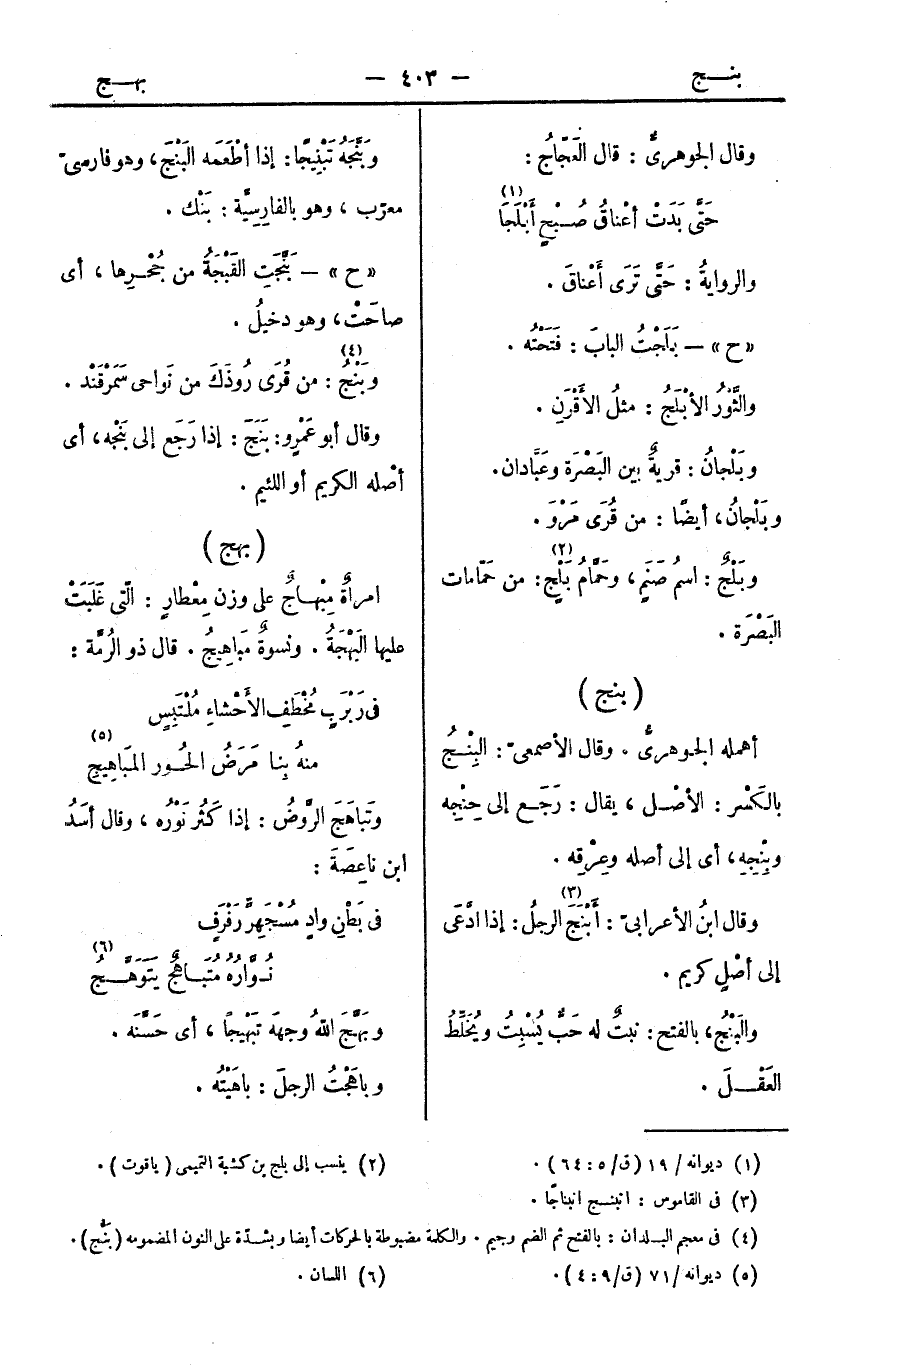 بنـج
— ٤٠٣ —
بهـج
وقال الجوهرىُّ : قال العَجّاجُ :
حَتَّى بَدَتْ أعْناقُ صُـبْحٍ أَبْلَجَا (١)
والروايةُ : حَتَّى تَرَى أَعْناقَ .
«ح» — بَلَجْتُ البابَ : فَتَحْتُه .
والثَّوْرُ الأَبْلَجُ : مثلُ الأَقْرَنِ .
وبَلْجانُ : قريةٌ بين البَصْرَة وعَبَّادان.
وبَلْجانُ، أيضًا : من قُرَى مَرْوَ .
وبَلْجٌ : اسمُ صَنَمٍ ، وحَمَّامُ بَلْجٍ (٢) : من حَمّامات
البَصْرَة .
( بنج )
أهمله الجـوهرىُّ . وقال الأصمعىّ : البِنْـجُ
بالكَسْر : الأصْـل ، يقال : رَجَـع إلى حِنْجِه
وبِنْجِهِ، أى إلى أصله وعِرْقِه .
وقال ابنُ الأعرابىّ : أَبْنَجَ (٣) الرجلُ : إذا ادَّعَى
إلى أصْلٍ كريم .
والبَنْجُ، بالفتح : نبتٌ له حَبٌّ يُسْبِتُ ويُخَلِّطُ
العَقْـلَ .
وبَنَّجَهُ تَبْنِيجًا : إذا أطْعَمَه البَنْجَ، وهو فارسىّ
معرّب ، وهو بالفارِسِيَّة : بَنْك .
«ح» — بَنَّجَتِ القَبْجَةُ من جُحْـرِها ، أى
صاحَتْ، وهو دخيلٌ .
وبَنْجُ (٤) : من قُرَى رُوذَكَ من نَواحى سَمَرْقَنْد .
وقال أبو عَمْرٍو : بَنَجَ : إذا رَجَع إلى بَنْجه، أى
أصْله الكريم أو اللئيم .
( بهج )
امرأةٌ مِبْهـاجٌ على وزن مِعْطارٍ : الّتى غَلَبَتْ
عليها البَهْجَةُ . ونسوةٌ مَبَاهِيجُ . قال ذو الرُّمَّة :
فى رَبْرَبٍ مُخْطَفِ الأَحْشاءِ مُلْتَبِسٍ
منهُ بِنـا مَرَضُ الحُـور المَبَاهِيجِ (٥)
وتَباهَجَ الرَّوْضُ : إذا كَثُر نَوْرُه ، وقال أسَدُ
ابن ناعِصَةَ :
فى بَطْنِ وادٍ مُسْجَهِرٍّ رَفْرَفٍ
نُـوَّارُهُ مُتَبـاهِجٌ يَتَوَهَّـجُ (٦)
وبَهَّجَ اللهُ وجهَه تَبْهِيجاً ، أى حَسَّنَه .
وباهَجْتُ الرجلَ : باهَيْتُه .
(١) ديوانه / ١٩ (ق/ ٥ : ٦٤) .
(٢) ينسب إلى بلج بن كشبة التميمى ( ياقوت ) .
(٣) فى القاموس : ابنـج ابناجًا .
(٤) فى معجم البـلدان : بالفتح ثم الضم وجيم . والكلمة مضبوطة بالحركات أيضا وبشدّة على النون المضمومه (بنُّج) .
(٥) ديوانه /٧١ (ق/٩ : ٤) .
(٦) اللسان .